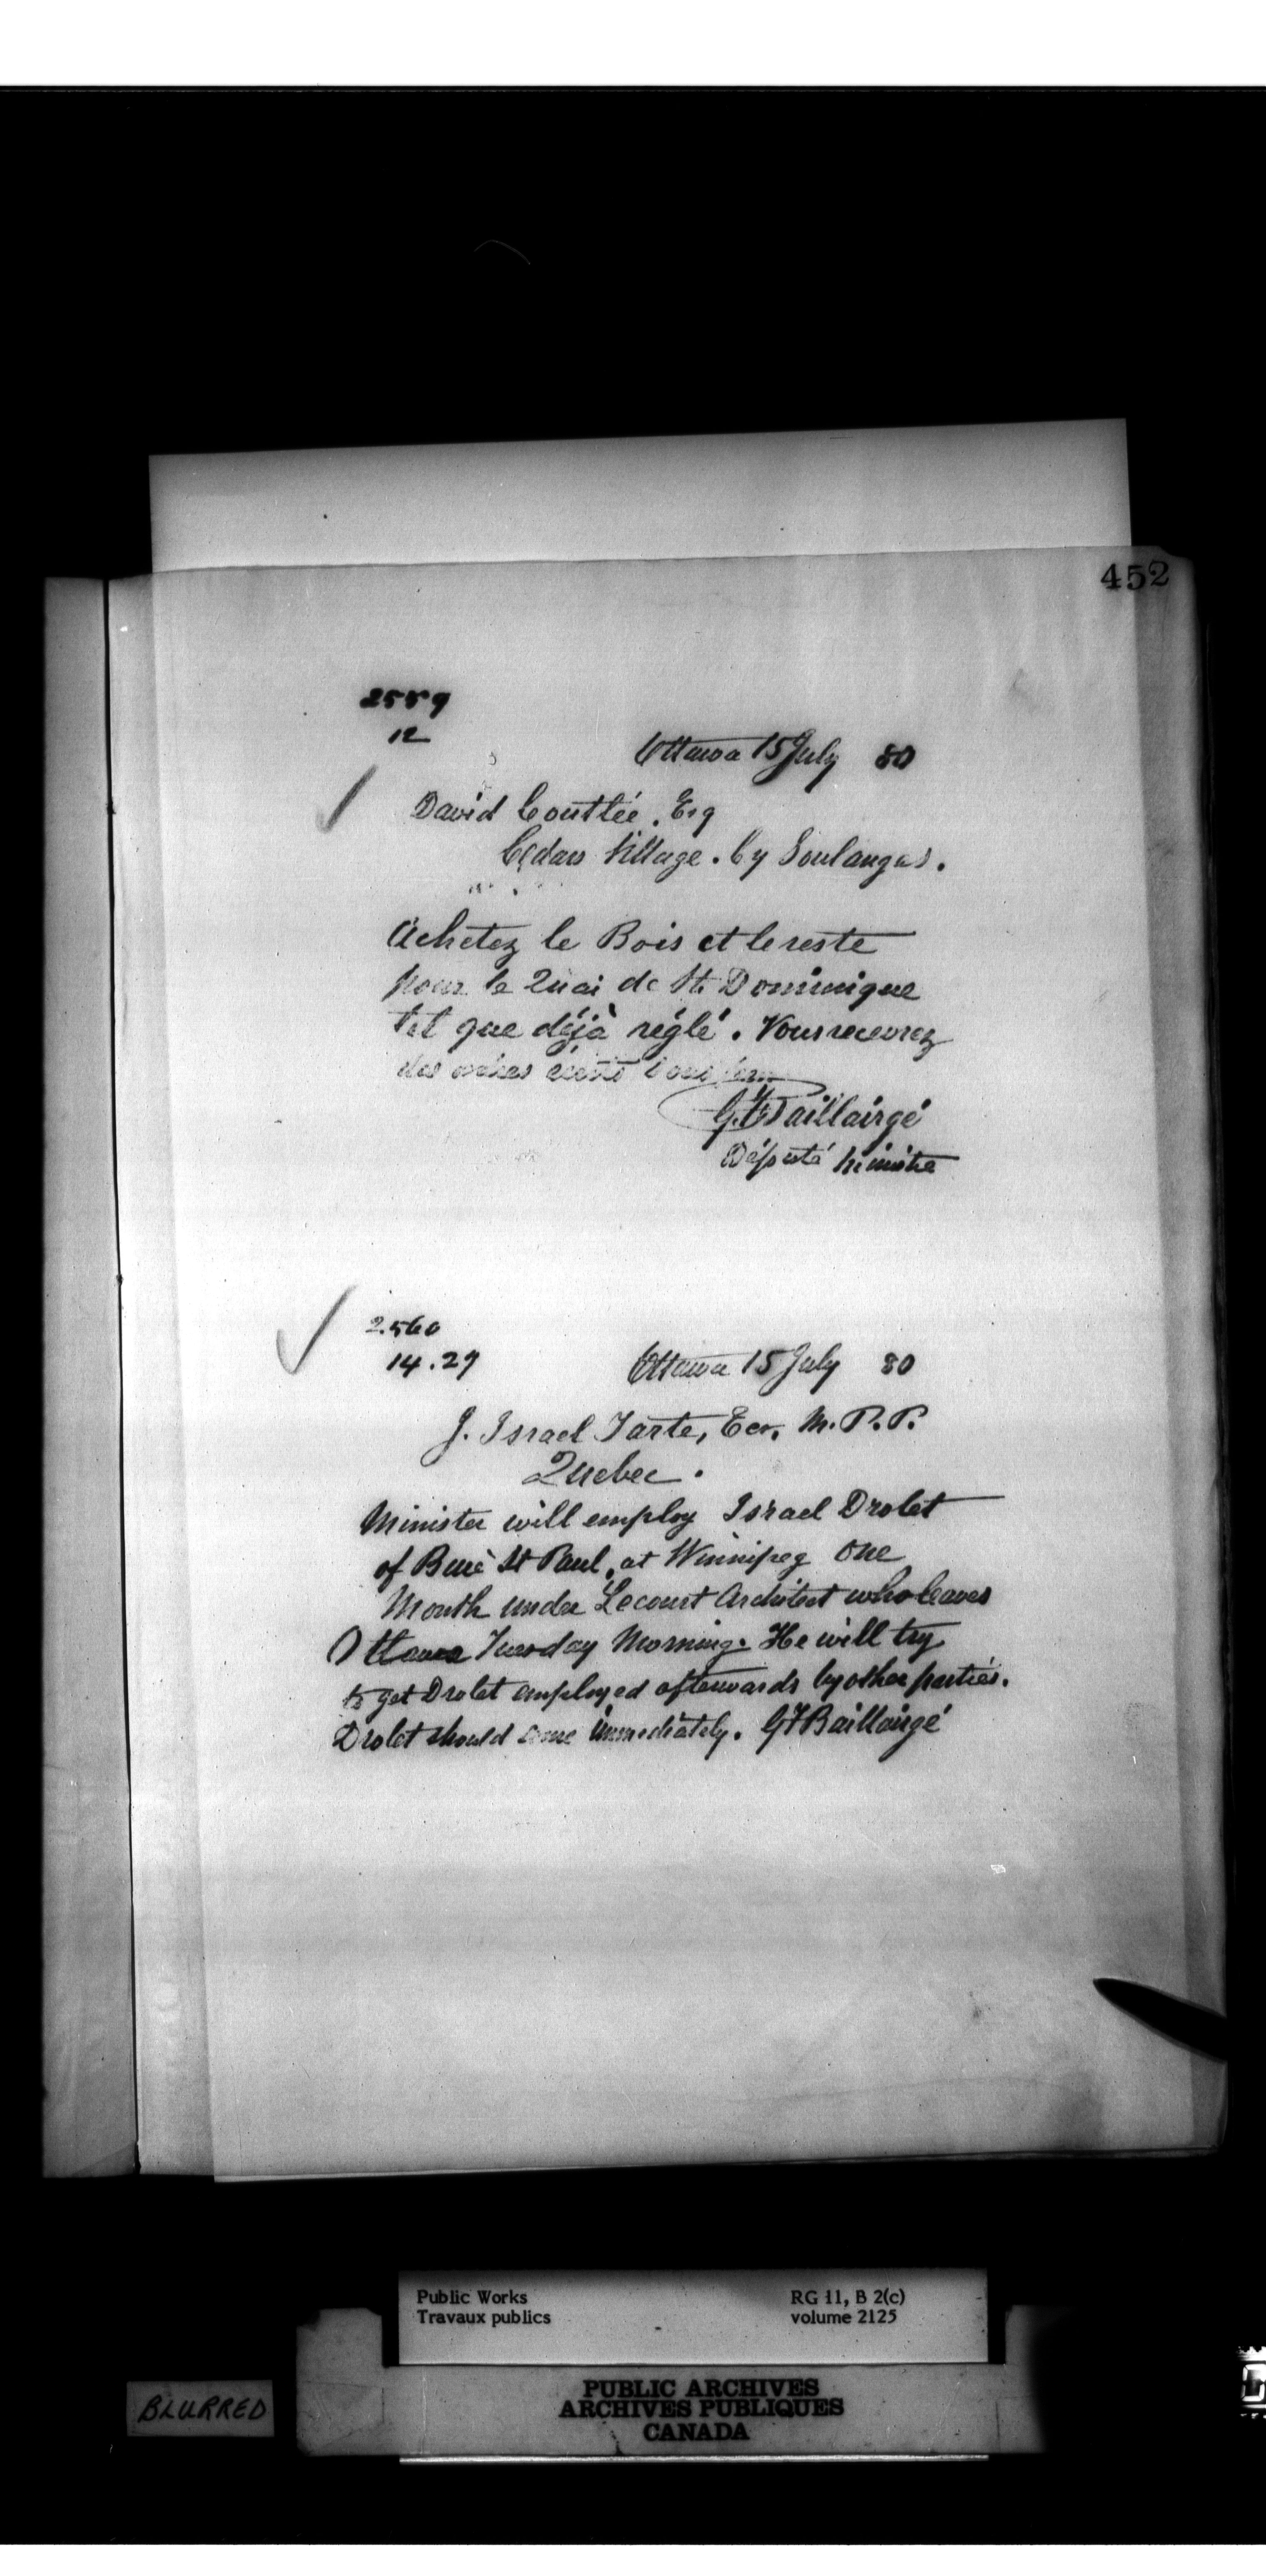 452
2559
12
Ottawa 15 July 80
David Couttée. Esq
Cedars Village. Cy Soulanges.
Achetez le Bois et le reste
pour le Quai de St Dominique
tel que déjà réglé. Vous recevrez
des ordres
G.F. Baillairgé
Député Ministre
2.560
14.29
Ottawa 15 July 80
J. Israel Tarte, Ecr. M.P.P.
Quebec.
Minister will employ Israel Drolet
of Baie St Paul, at Winnipeg one
Month under Lecourt Architect who leaves
Ottawa Tuesday Morning. He will try
to get Drolet employed afterwards by other parties.
Drolet should come immediately. GFBaillairgé
Public Works
Travaux publics
RG 11, B 2(c)
volume 2125
BLURRED
PUBLIC ARCHIVES
ARCHIVES PUBLIQUES
CANADA